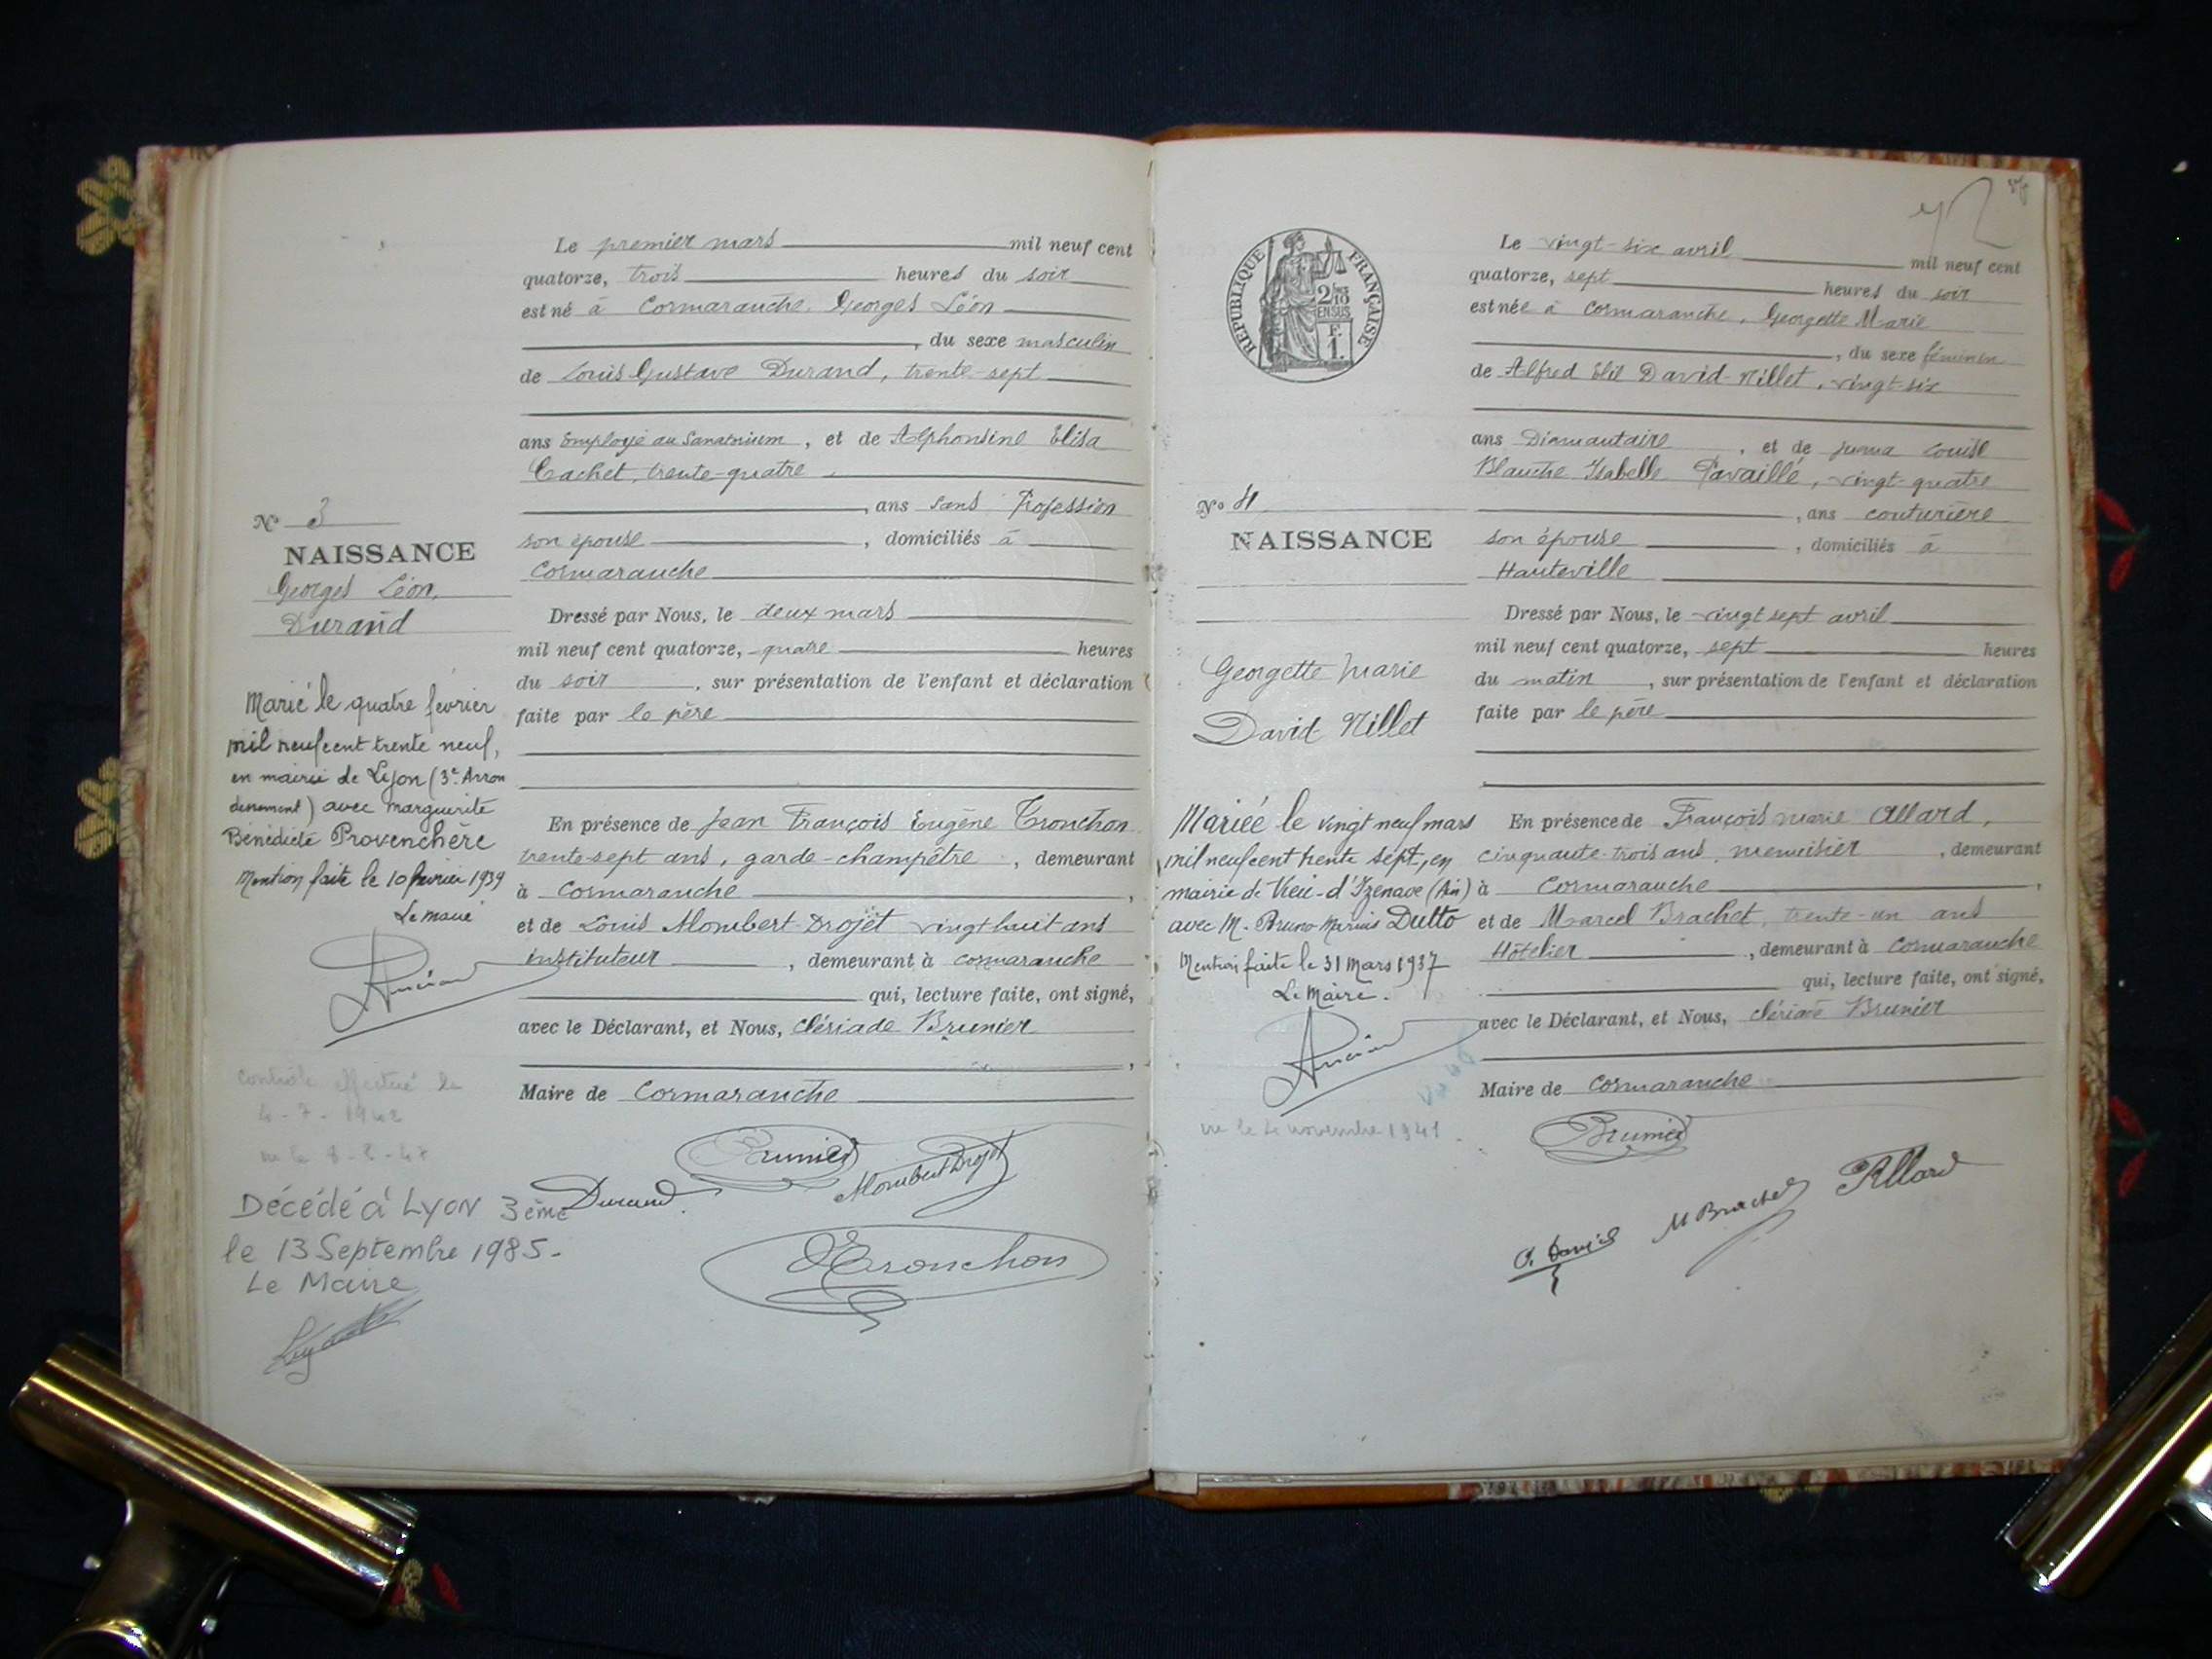 Le premier mars mil neuf cent
quatorze, trois heures du soir
est né à Cormaranche, Georges Léon
, du sexe masculin
de Louis Gustave Durand, trente-sept
ans Employé au Sanatorium, et de Alphonsine Elisa
Cachet, trente-quatre
, ans sans Profession
son épouse, domiciliés à
Cormaranche
Dressé par Nous, le deux mars
mil neuf cent quatorze, quatre heures
du soir, sur présentation de l'enfant et déclaration
faite par le père
En présence de Jean François Eugène Tronchon
trente-sept ans, garde-champêtre, demeurant
à Cormaranche,
et de Louis Mombert-Drojet vingt huit ans
instituteur, demeurant à Cormaranche
qui, lecture faite, ont signé,
avec le Déclarant, et Nous, Clériade Brunier
,
Maire de Cormaranche
Brunier
Mombert Drojet
Durand
Tronchon
No 3
NAISSANCE
Georges Léon,
Durand
Marié le quatre février
mil neuf cent trente neuf,
en mairie de Lyon (3e Arron
dissement) avec Marguerite
Bénédicte Provenchère
Mention faite le 10 février 1939
Le Maire
Contrôle effectué le
4-7-1942
Décédé à Lyon 3ème
le 13 Septembre 1985.
Le Maire
RÉPUBLIQUE FRANÇAISE
2/10
EN SUS
F.
1.
Le vingt-six avril mil neuf cent
quatorze, sept heures du soir
est née à Cormaranche, Georgette Marie
, du sexe féminin
de Alfred Elie David-Nillet, vingt-six
ans Diamantaire, et de Louise
Blanche Isabelle Pavaillé, vingt-quatre
, ans couturière
son épouse, domiciliés à
Hauteville
Dressé par Nous, le vingt sept avril
mil neuf cent quatorze, sept heures
du matin, sur présentation de l'enfant et déclaration
faite par le père
En présence de François Marie Allard,
cinquante-trois ans, menuisier, demeurant
à Cormaranche,
et de Marcel Brachet, trente-un ans
Hôtelier, demeurant à Cormaranche
qui, lecture faite, ont signé,
avec le Déclarant, et Nous, Clériade Brunier
Maire de Cormaranche
Brunier
M Brachet
Allard
No 4
NAISSANCE
Georgette Marie
David-Nillet
Mariée le vingt neuf mars
mil neuf cent trente sept, en
mairie de Vieu-d'Izenave (Ain)
avec M. Bruno Marius Dutto
Mention faite le 31 Mars 1937
Le Maire.
vu le 4 novembre 1941